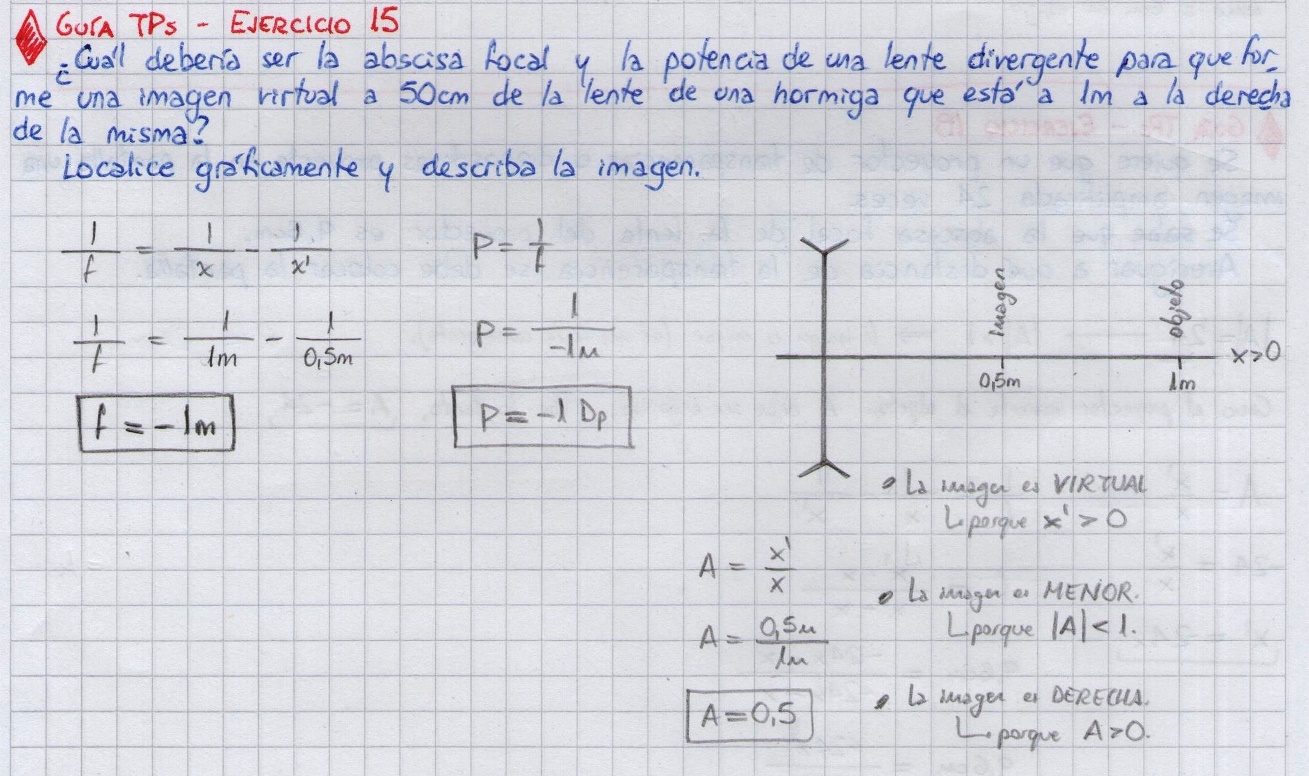 GUÍA TPs - EJERCICIO 15
¿Cuál debería ser la abscisa focal y la potencia de una lente divergente para que for_
me una imagen virtual a 50cm de la lente de una hormiga que está a 1m a la derecha
de la misma?
Localice gráficamente y describa la imagen.
1/f = 1/x - 1/x'
1/f = 1/1m - 1/0,5m
f = -1m
P = 1/f
P = 1/-1m
P = -1 Dp
imagen
objeto
x>0
0,5m
1m
A = x'/x
A = 0,5m/1m
A = 0,5
• La imagen es VIRTUAL
↳ porque x' > 0
• La imagen es MENOR.
↳ porque |A| < 1.
• La imagen es DERECHA.
↳ porque A>0.